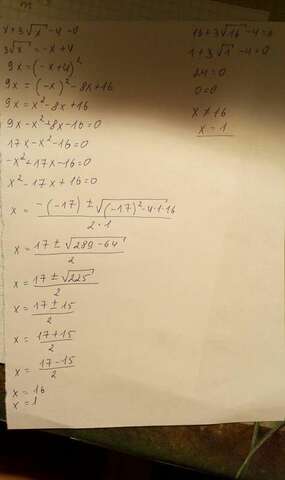 x+3√x -4=0
3√x = -x+4
9x = (-x+4)²
9x = (-x)² -8x+16
9x = x² -8x+16
9x-x²+8x-16=0
17x-x²-16=0
-x²+17x-16=0
x²-17x+16=0
x = -(-17) ± √(-17)²-4·1·16 / 2·1
x = 17 ± √289-64 / 2
x = 17 ± √225 / 2
x = 17 ± 15 / 2
x = 17+15 / 2
x = 17-15 / 2
x = 16
x = 1
16+3√16 -4=0
1+3√1 -4=0
24=0
0=0
x ≠ 16
x = 1